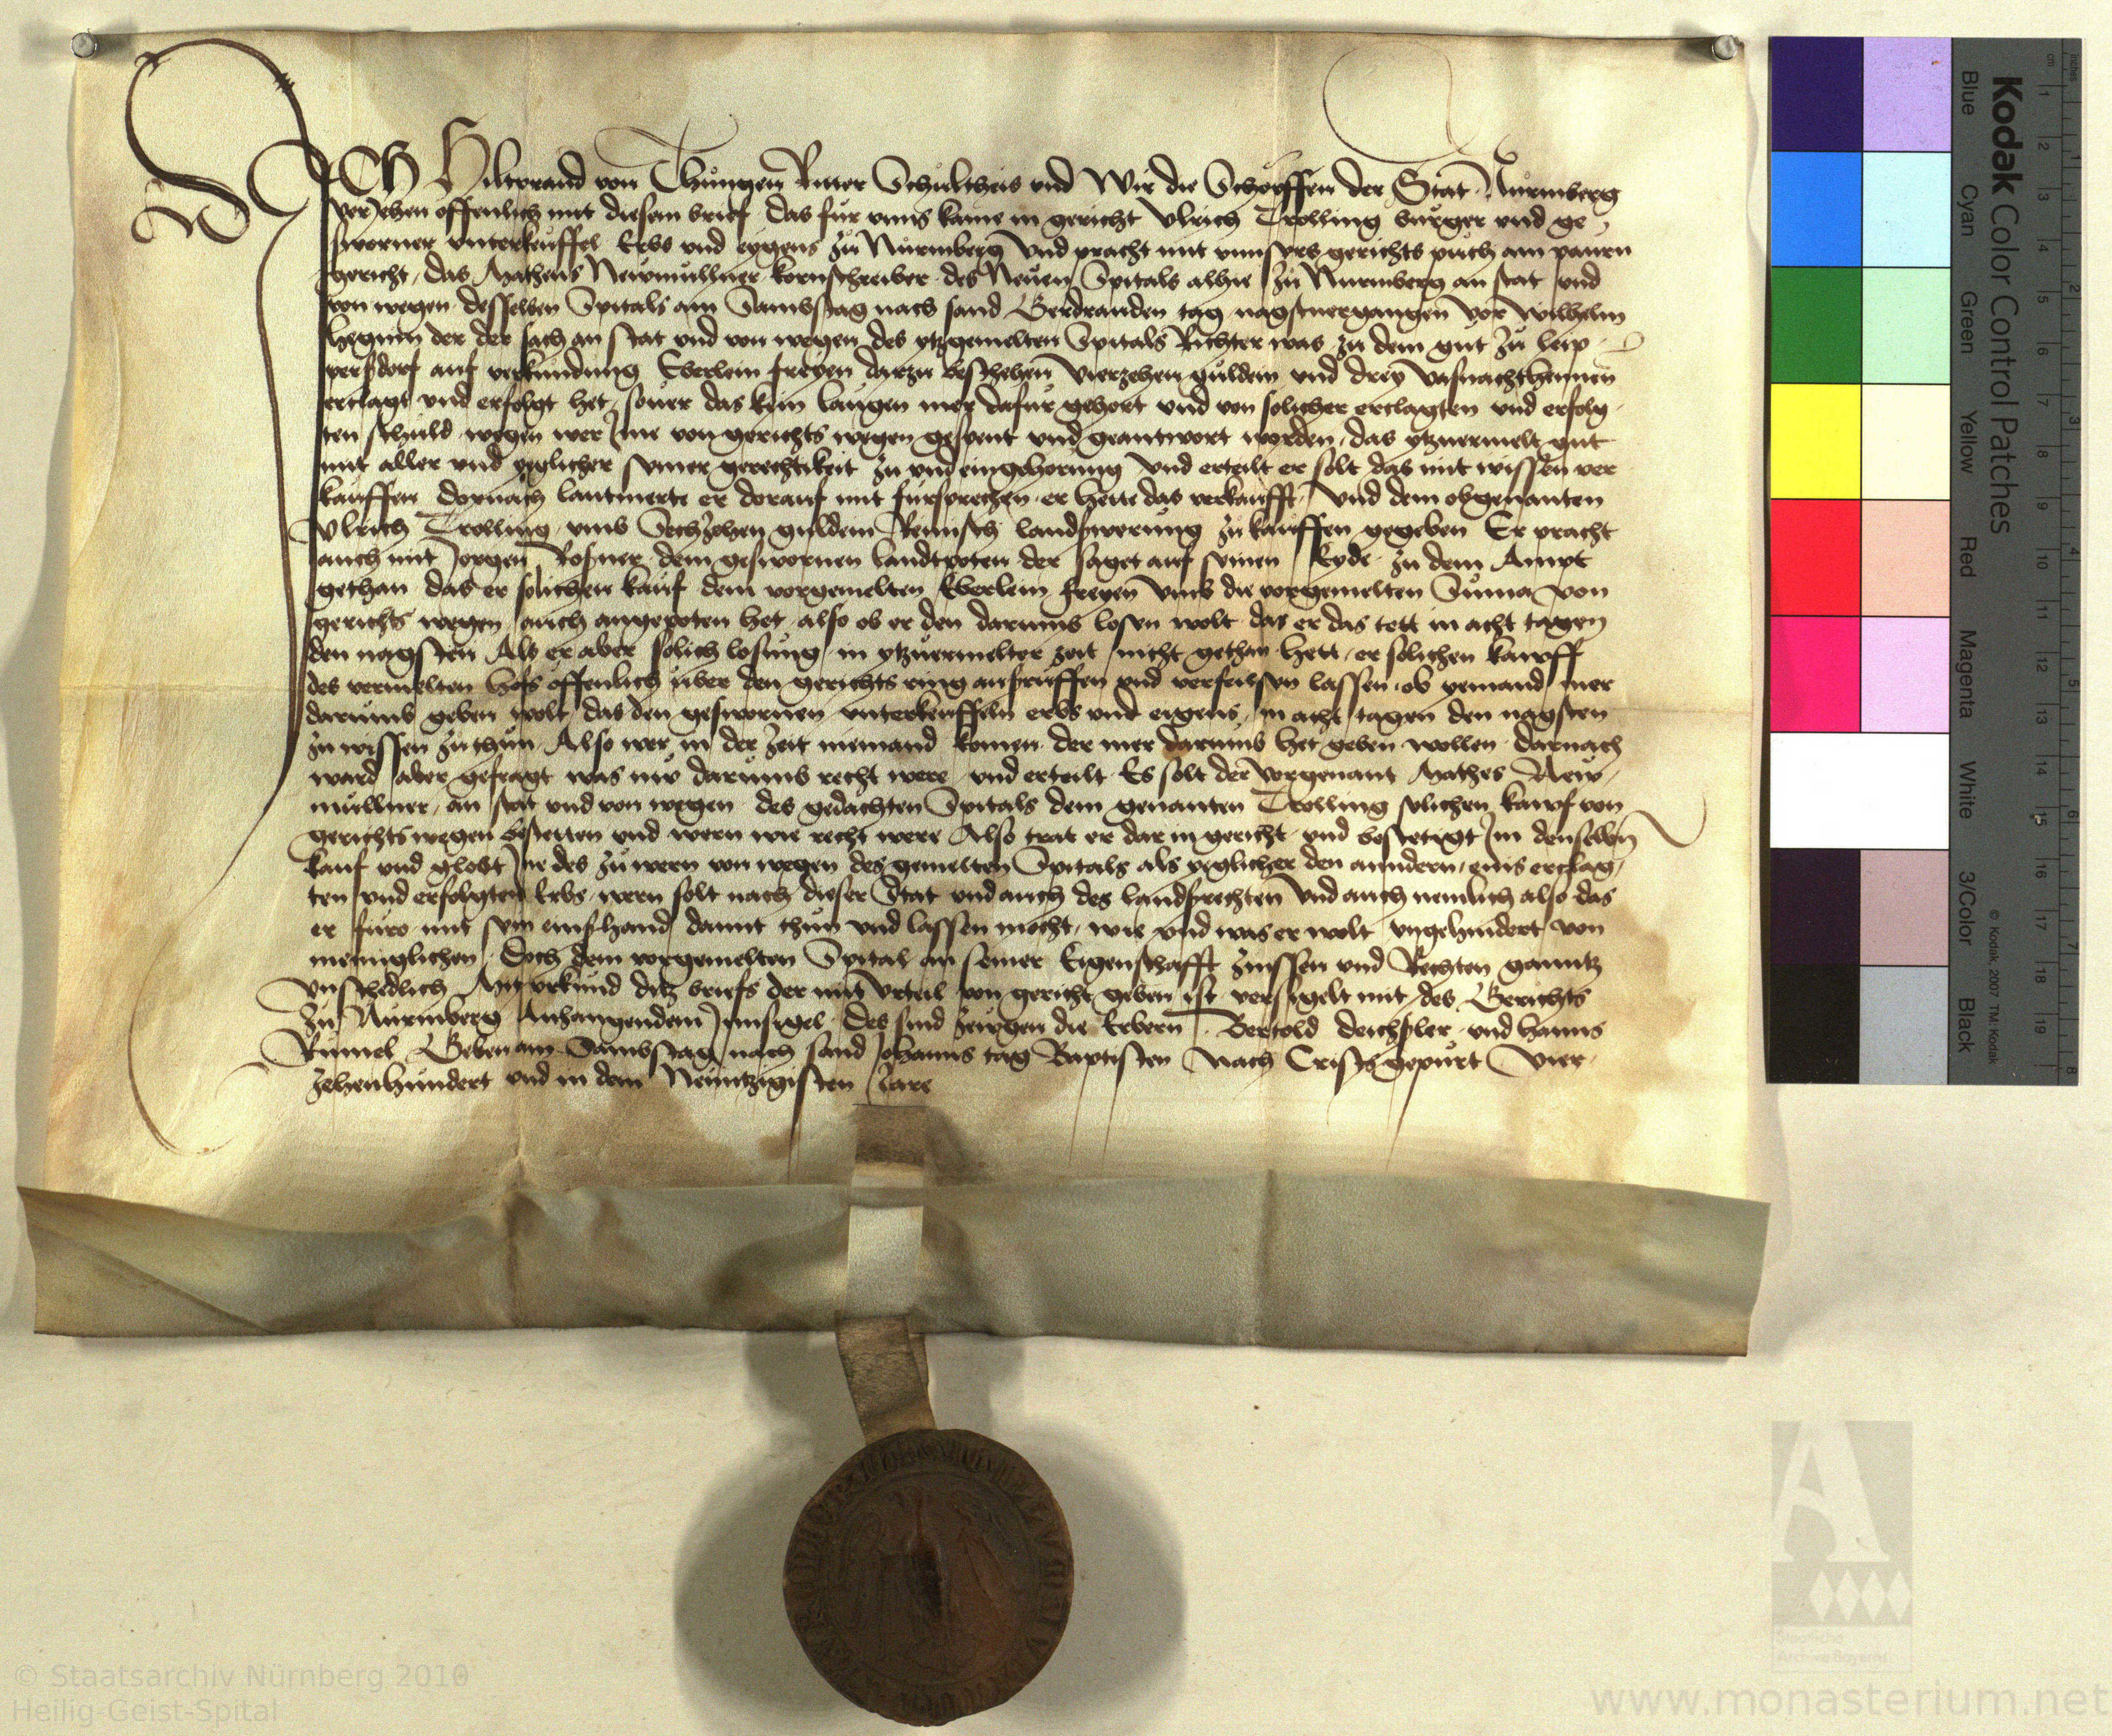 ICH Hiltprand von Thüngen Ritter Schultheis vnd Wir die Schöpffen der Stat Nurmberg
veriehen offenlich mit diesem brief das für vnns kame in gericht Vlrich Trolling burger vnd ge
sworner vnterkeuffel Erbs vnd eygens zu Nurmberg Vnd pracht mit vnnsers gerichts puch am pauren
gericht, das Matheus Newmullner kornschreiber des Neuen Spitals alhie zu Nurmberg an stat vnd
von wegen desselben Spitals am Sambstag nach sand Gerdrauden tag nagstuergangen Vor Wilhelm
der der sach an stat vnd von wegen des ytzgemelten Spitals Richter was zu dem gut zu leup
verßdorf auf verkundung Eberlein freyen darzu beschehen Vierzehen guldein vnd drey vasnachthennen
erclagt vnd erfolgt het, souer das kein laugen mer dafur gehort vnd von solicher erclagten vnd erfolg
ten schuld wegen wer Ime von gerichts wegen gefrent vnd geantwort worden, das ytzuermelt gut
mit aller vnd yglicher seiner gerechtikeit zu vnd eingehorung Vnd erteilt er solt das mit wissen ver
kauffen dornach lautmerte er dorauf mit fursprechen er hette das verkaufft, Vnd dem obgenanten
Vlrich Trolling vmb Sechzehen guldein Reinisch landßwerung zu kauffen gegeben Er pracht
auch mit Jorgen Rosner dem geswornen landtpoten der saget auf seinen Eyde zu dem Ampt
gethan das er solichen kauf dem vorgemelten Eberlein freyen Vmb die vorgemelten Suma von
gerichts wegen auch angepoten het, also ob er den darumb losen wolt das er das tett in acht tagen
den nagsten Als er aber solich losung in ytzuermelter zeit nicht gethan hett, er solichen kawff
des vermelten hofs offenlich über den gerichts ring außruffen vnd verfeilsen lassen, ob yemand mer
darumb geben wolt das den geswornen vnterkeuffeln erbs vnd eigens, in acht tagen den nagsten
zu wissen zuthun Also wer in der zeit niemand komen der mer darumb het geben wollen darnach
ward aber gefragt was nw darumb recht were vnd erteilt Es solt der vorgenant Mathes New
mullner, an stat vnd von wegen des gedachten Spitals dem genanten Trolling solichen kawf von
gerichts wegen bestetten vnd wern wie recht were Also trat er dar in gericht vnd bestetigt Im denselben
kauf vnd globt Ine des zu wern von wegen des gemelten Spitals als yglicher den anndern, eins erclag
ten vnd erfolgten Erbs wern solt nach dieser Stat vnd auch des landßrechten Vnd auch nemlich also das
er furo mit sein einßhand damit thun vnd lassen mocht, wie vnd was er wolt vngehindert von
meniglichen Doch dem vorgemelten Spital an seiner Eigenschafft zinssen vnd Rechten ganntz
vnschedlich Mit vrkund ditz briefs der mit Vrteil von gericht geben ist versigelt mit des Gerichts
zu Nurmberg Anhangendem Innsigel Des sind zewgen die Erbern Bertold deichsler vnd hanns
Rumel Geben am Sambstag nach sand Johanns tag Baptisten Nach Cristi gepurt Vier
zehenhundert vnd in dem Neuntzigisten Jare
Kodak Color Control Patches
Blue Cyan Green Yellow Red Magenta White 3/Color Black
© Kodak, 2007 TM: Kodak
© Staatsarchiv Nürnberg 2010
Heilig-Geist-Spital
www.monasterium.net